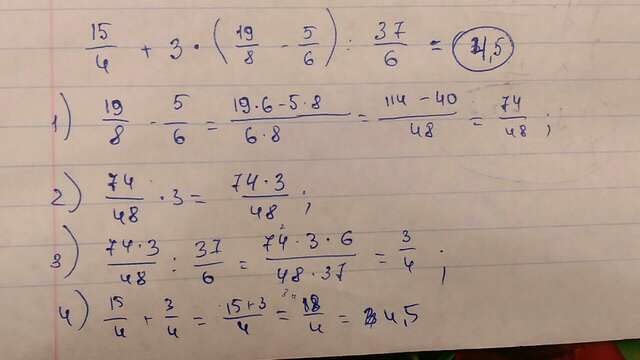 15/4 + 3 · (19/8 - 5/6) : 37/6 = 4,5
1) 19/8 - 5/6 = (19·6-5·8)/(6·8) = (114-40)/48 = 74/48 ;
2) 74/48 · 3 = (74·3)/48 ;
3) (74·3)/48 : 37/6 = (74·3·6)/(48·37) = 3/4 ;
4) 15/4 + 3/4 = (15+3)/4 = 18/4 = 4,5